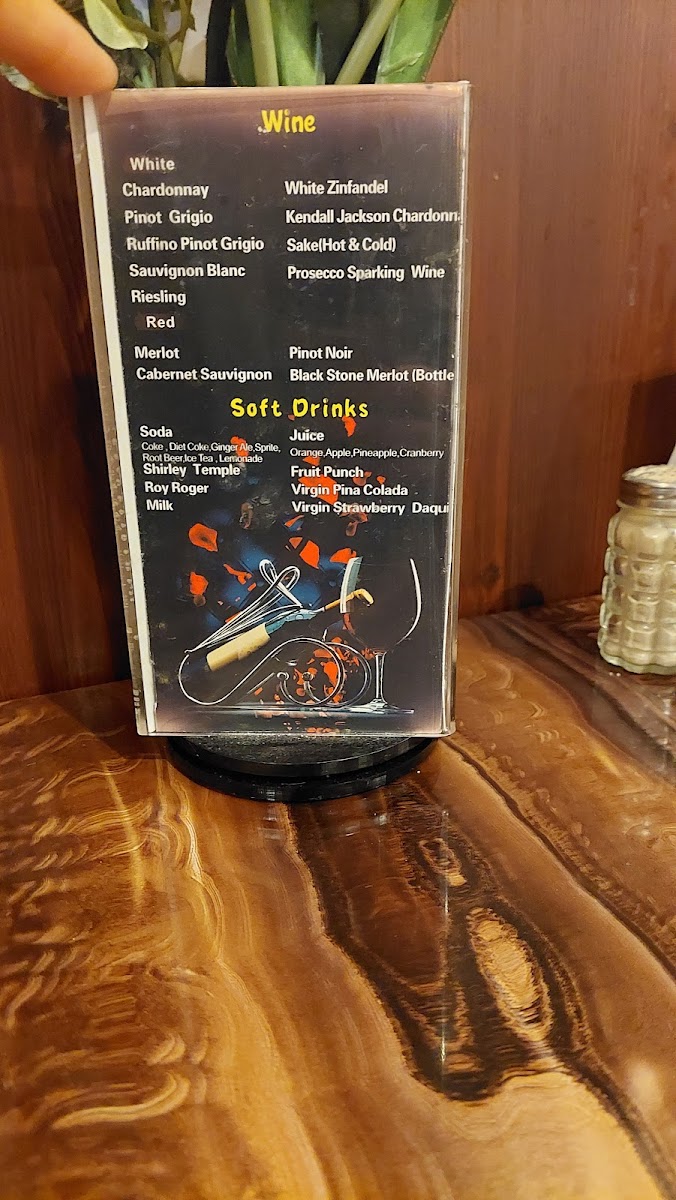 Wine
White
Chardonnay
White Zinfandel
Pinot Grigio
Kendall Jackson Chardonn
Ruffino Pinot Grigio
Sake(Hot & Cold)
Sauvignon Blanc
Prosecco Sparking Wine
Riesling
Red
Merlot
Pinot Noir
Cabernet Sauvignon
Black Stone Merlot (Bottle
Soft Drinks
Soda
Coke , Diet Coke,Ginger Ale,Sprite,
Root Beer,Ice Tea , Lemonade
Juice
Orange,Apple,Pineapple,Cranberry
Shirley Temple
Fruit Punch
Roy Roger
Virgin Pina Colada
Milk
Virgin Strawberry Daqui